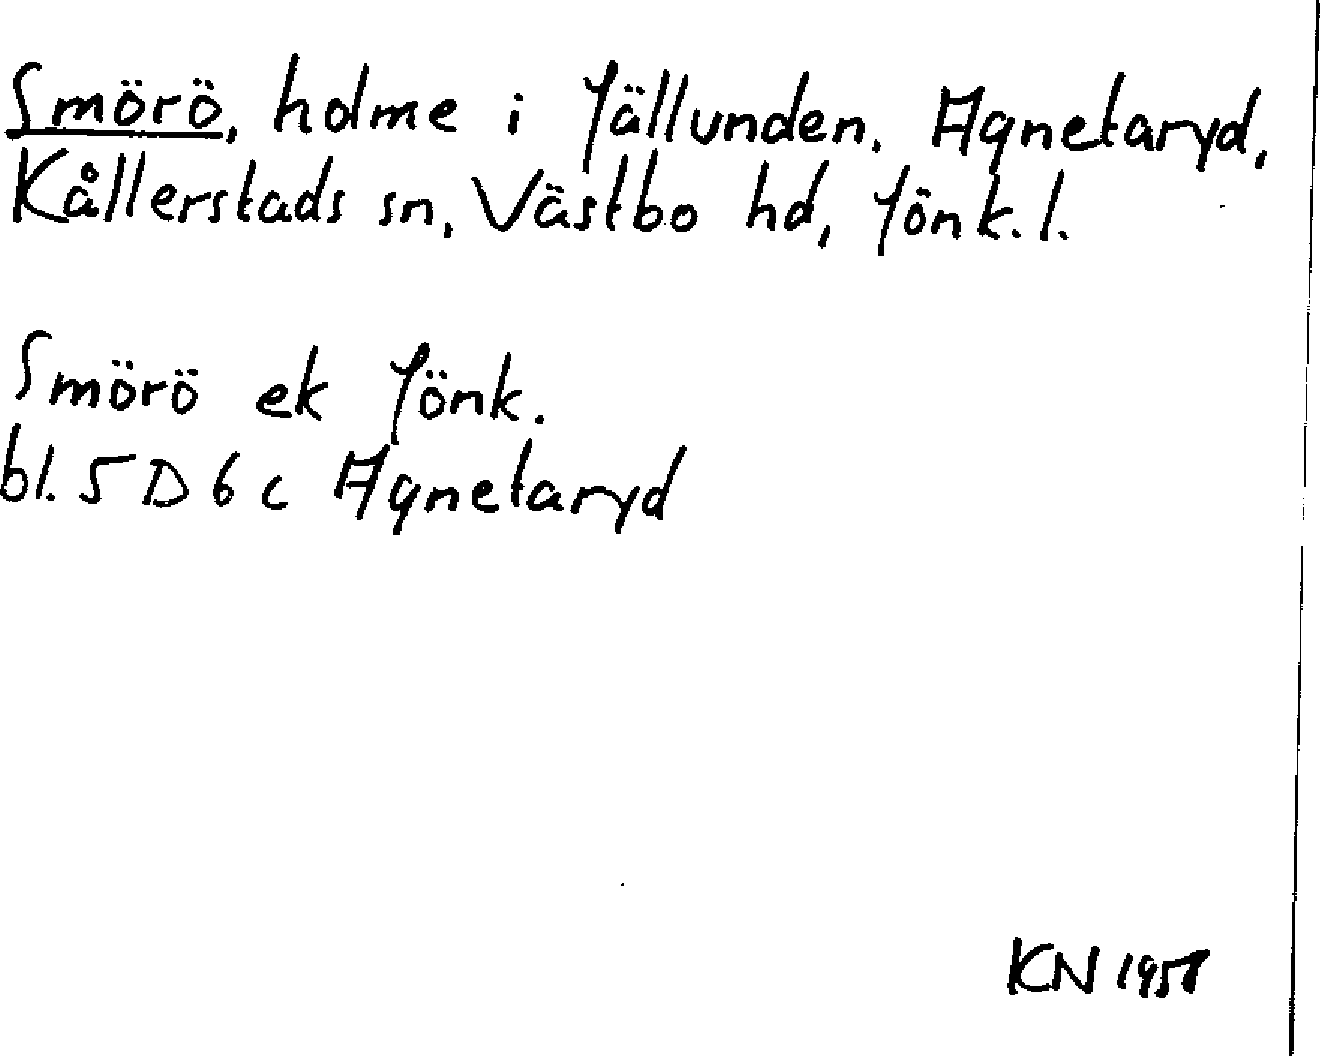 Smörö, holme i Jällunden. Agnetaryd,
Kållerstads sn, Västbo hd, Jönk. l.
Smörö ek Jönk.
bl. 5 D 6 c Agnetaryd
KN